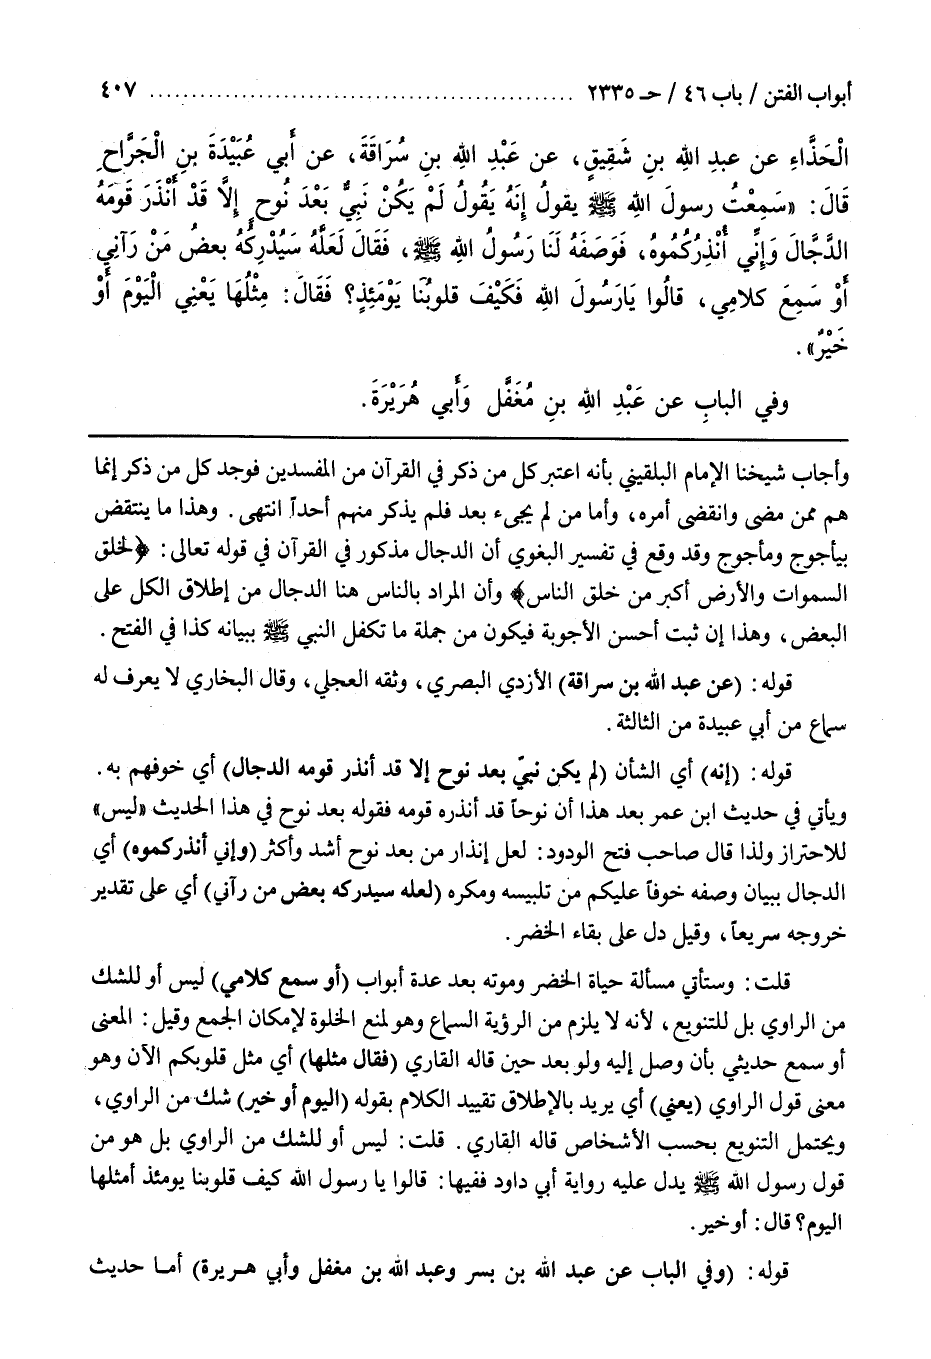 أبواب الفتن / باب ٤٦ / حـ ٢٣٣٥ .................................................. ٤٠٧
الْحَذَّاءِ عن عبدِ الله بنِ شَقِيقٍ، عن عَبْدِ اللهِ بنِ سُرَاقَةَ، عن أَبي عُبَيْدَةَ بنِ الْجَرَّاحِ
قَالَ: «سَمِعْتُ رسولَ الله ﷺ يقولُ إنَّهُ يَقُولُ لَمْ يَكُنْ نَبِيٌّ بَعْدَ نُوحٍ إلَّا قَدْ أَنْذَرَ قَوْمَهُ
الدَّجَّالَ وَإنِّي أُنْذِرُكُمُوهُ، فَوَصَفَهُ لَنَا رَسُولُ اللهِ ﷺ، فَقَالَ لَعَلَّهُ سَيُدْرِكُهُ بعضُ مَنْ رَآنِي
أَوْ سَمِعَ كلامِي، قالُوا يَارَسُولَ اللهِ فَكَيْفَ قلوبُنَا يَوْمَئِذٍ؟ فَقَالَ: مِثْلُهَا يَعْنِي الْيَوْمَ أَوْ
خَيْرٌ».
وفي البابِ عن عَبْدِ اللهِ بنِ مُغَفَّل وَأَبي هُرَيْرَةَ.
وأجاب شيخنا الإمام البلقيني بأنه اعتبر كل من ذكر في القرآن من المفسدين فوجد كل من ذكر إنما
هم ممن مضى وانقضى أمره، وأما من لم يجىء بعد فلم يذكر منهم أحداً انتهى. وهذا ما ينتقض
بيأجوج ومأجوج وقد وقع في تفسير البغوي أن الدجال مذكور في القرآن في قوله تعالى: ﴿لخلق
السموات والأرض أكبر من خلق الناس﴾ وأن المراد بالناس هنا الدجال من إطلاق الكل على
البعض، وهذا إن ثبت أحسن الأجوبة فيكون من جملة ما تكفل النبي ﷺ ببيانه كذا في الفتح.
قوله: (عن عبد الله بن سراقة) الأزدي البصري، وثقه العجلي، وقال البخاري لا يعرف له
سماع من أبي عبيدة من الثالثة.
قوله: (إنه) أي الشأن (لم يكن نبيّ بعد نوح إلا قد أنذر قومه الدجال) أي خوفهم به.
ويأتي في حديث ابن عمر بعد هذا أن نوحاً قد أنذره قومه فقوله بعد نوح في هذا الحديث «ليس»
للاحتراز ولذا قال صاحب فتح الودود: لعل إنذار من بعد نوح أشد وأكثر (وإني أنذركموه) أي
الدجال ببيان وصفه خوفاً عليكم من تلبيسه ومكره (لعله سيدركه بعض من رآني) أي على تقدير
خروجه سريعاً، وقيل دل على بقاء الخضر.
قلت: وستأتي مسألة حياة الخضر وموته بعد عدة أبواب (أو سمع كلامي) ليس أو للشك
من الراوي بل للتنويع، لأنه لا يلزم من الرؤية السماع وهو لمنع الخلوة لإمكان الجمع وقيل: المعنى
أو سمع حديثي بأن وصل إليه ولو بعد حين قاله القاري (فقال مثلها) أي مثل قلوبكم الآن وهو
معنى قول الراوي (يعني) أي يريد بالإطلاق تقييد الكلام بقوله (اليوم أو خير) شك من الراوي،
ويحتمل التنويع بحسب الأشخاص قاله القاري. قلت: ليس أو للشك من الراوي بل هو من
قول رسول الله ﷺ يدل عليه رواية أبي داود ففيها: قالوا يا رسول الله كيف قلوبنا يومئذ أمثلها
اليوم؟ قال: أو خير.
قوله: (وفي الباب عن عبد الله بن بسر وعبد الله بن مغفل وأبي هريرة) أما حديث